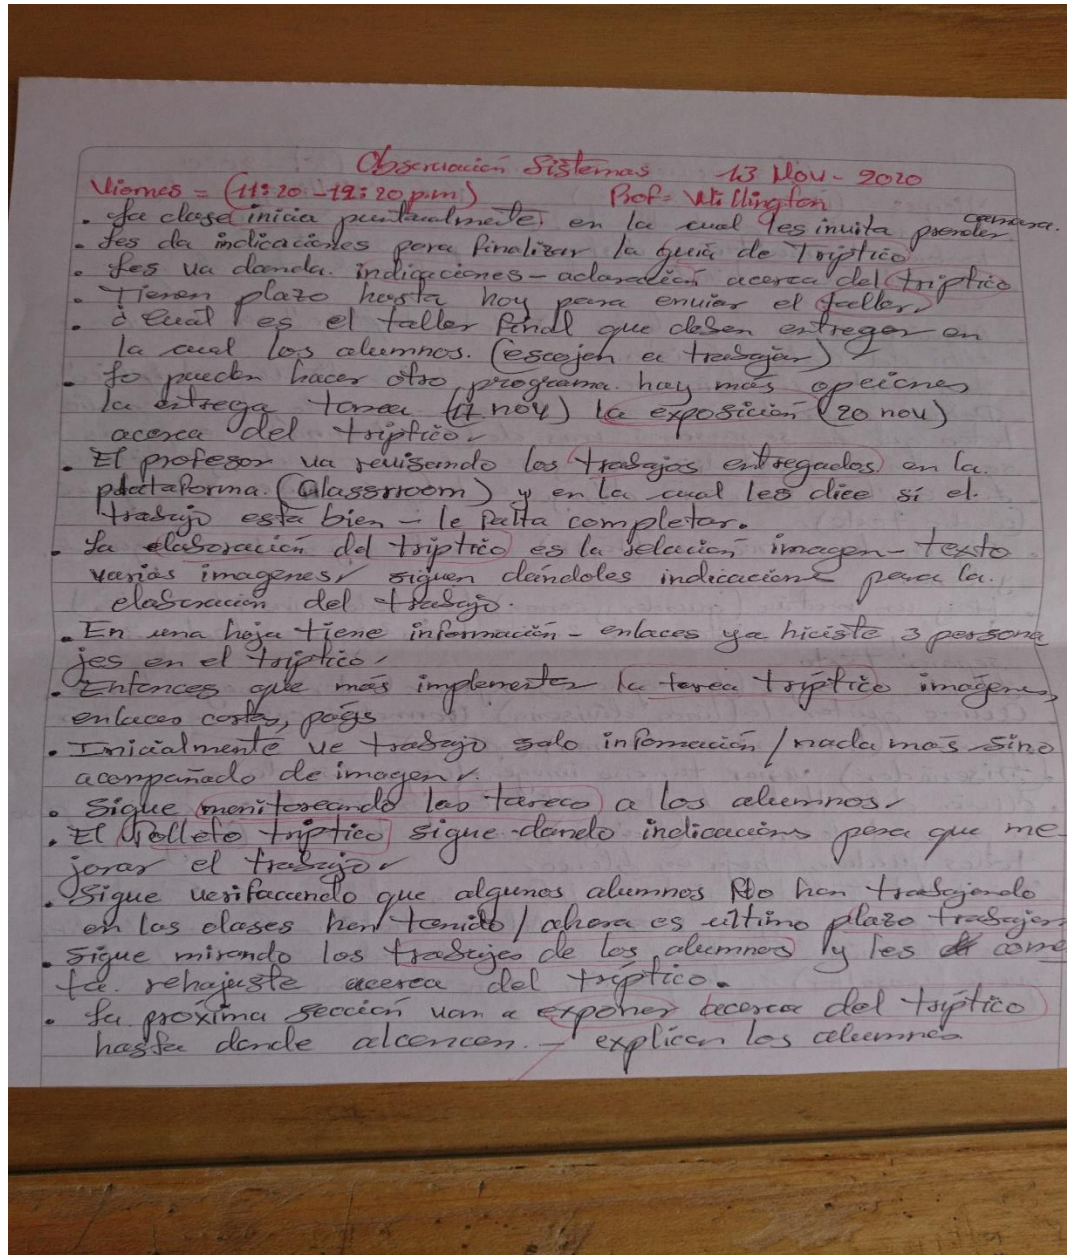 Observación Sistemas 13 Nov - 2020
Viernes = (11:20 - 12:20 p.m) Prof = Willington
. La clase inicia puntualmente, en la cual les invita prender camara.
. Les da indicaciones para finalizar la guia de Triptico
. Les va danda. indicaciones - aclaración acerca del triptico
. Tienen plazo hasta hoy para enviar el taller.
. ¿Cuál es el taller final que deben entregar en
la cual los alumnos. (escojen a trabajar)?
. Lo pueden hacer otro programa. hay más opciones
la entrega tarea (17 nov) la exposición (20 nov)
acerca del triptico.
. El profesor va revisando los trabajos entregados en la
plataforma. (Classrroom) y en la cual les dice sí el.
trabajo esta bien - le falta completar.
. La elaboración del triptico es la relación imagen - texto
varias imagenes, siguen dándoles indicacione para la.
elaboración del trabajo.
. En una hoja tiene información - enlaces ya hiciste 3 persona
jes en el triptico.
. Entonces que más implementar la tarea triptico imagenes,
enlaces cortos, págs
. Inicialmente ve trabajo solo información / nada más sino
acompañado de imagen.
. Sigue monitoreando las tareas a los alumnos.
. El folleto triptico sigue dando indicacions para que me-
jorar el trabajo.
. Sigue verifacando que algunos alumnos No han trabajando
en las clases han tenido / ahora es ultimo plazo trabajar
. Sigue mirando los trabajos de los alumnos y les come
ta. rehajuste acerca del triptico.
. La proxima sección van a exponer acerca del triptico
hasta donde alcancen. - explican los alumnos